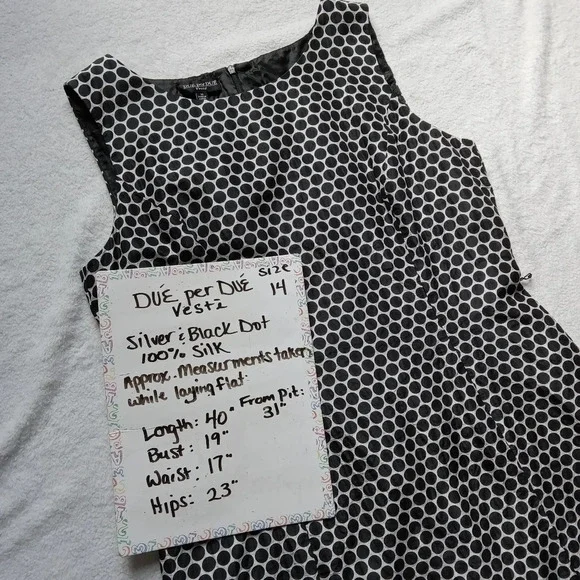 DUÉ per DUÉ
DUÉ per DUÉ
Vesti
size
14
Silver & Black Dot
100% Silk
Approx. Measurments taken
while laying flat:
Length: 40"
From Pit:
31"
Bust: 19"
Waist: 17"
Hips: 23"